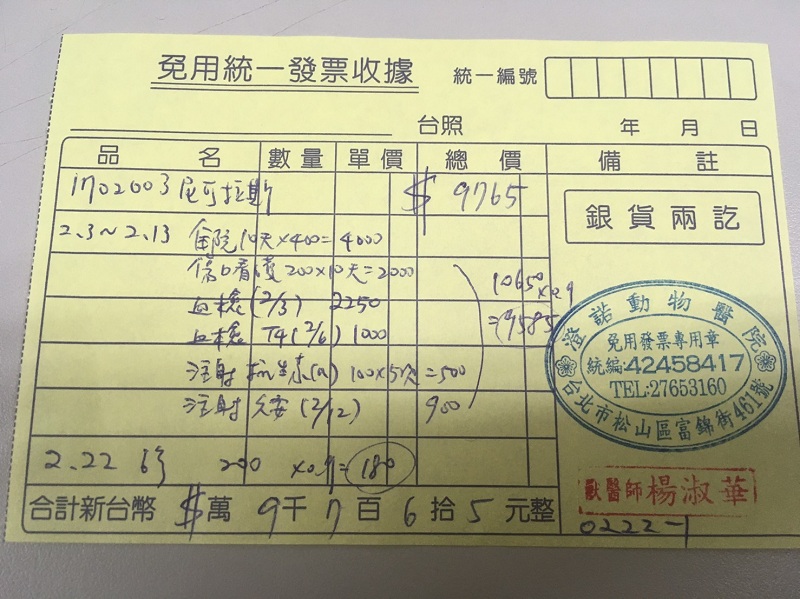 免用統一發票收據
統一編號
台照 年 月 日
品名 數量 單價 總價 備註
1702003 尼可拉斯 $ 9765
銀貨兩訖
2.3~2.13 住院10天×400=4000
傷口看護 200×10天=2000
10650×0.9
=9585
血檢(2/3) 2250
血檢 T4(2/6) 1000
注射 抗生素(a) 100×5次=500
注射 (2/12) 900
2.22 200 ×0.9=180
合計新台幣 $萬9千7百6拾5元整
澄諾動物醫院
免用發票專用章
統編:42458417
TEL:27653160
台北市松山區富錦街461號
獸醫師楊淑華
0222-1